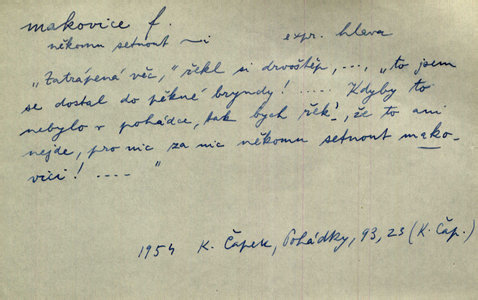 makovice f.
někomu setnout ~i expr. hlava
„Zatrápená věc,“ řekl si drvoštěp, ..., „to jsem
se dostal do pěkné bryndy! ..... Kdyby to
nebylo v pohádce, tak bych řek!, že to ani
nejde, pro nic za nic někomu setnout mako-
vici! ..... “
1954 K. Čapek, Pohádky, 93, 23 (K. Čap.)